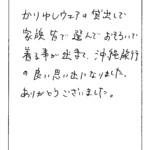 かりゆしウェアは貸出しで
家族皆で選んでおそろいで
着る事が出来て、沖縄旅行
の良い思い出になりました。
ありがとうございました。